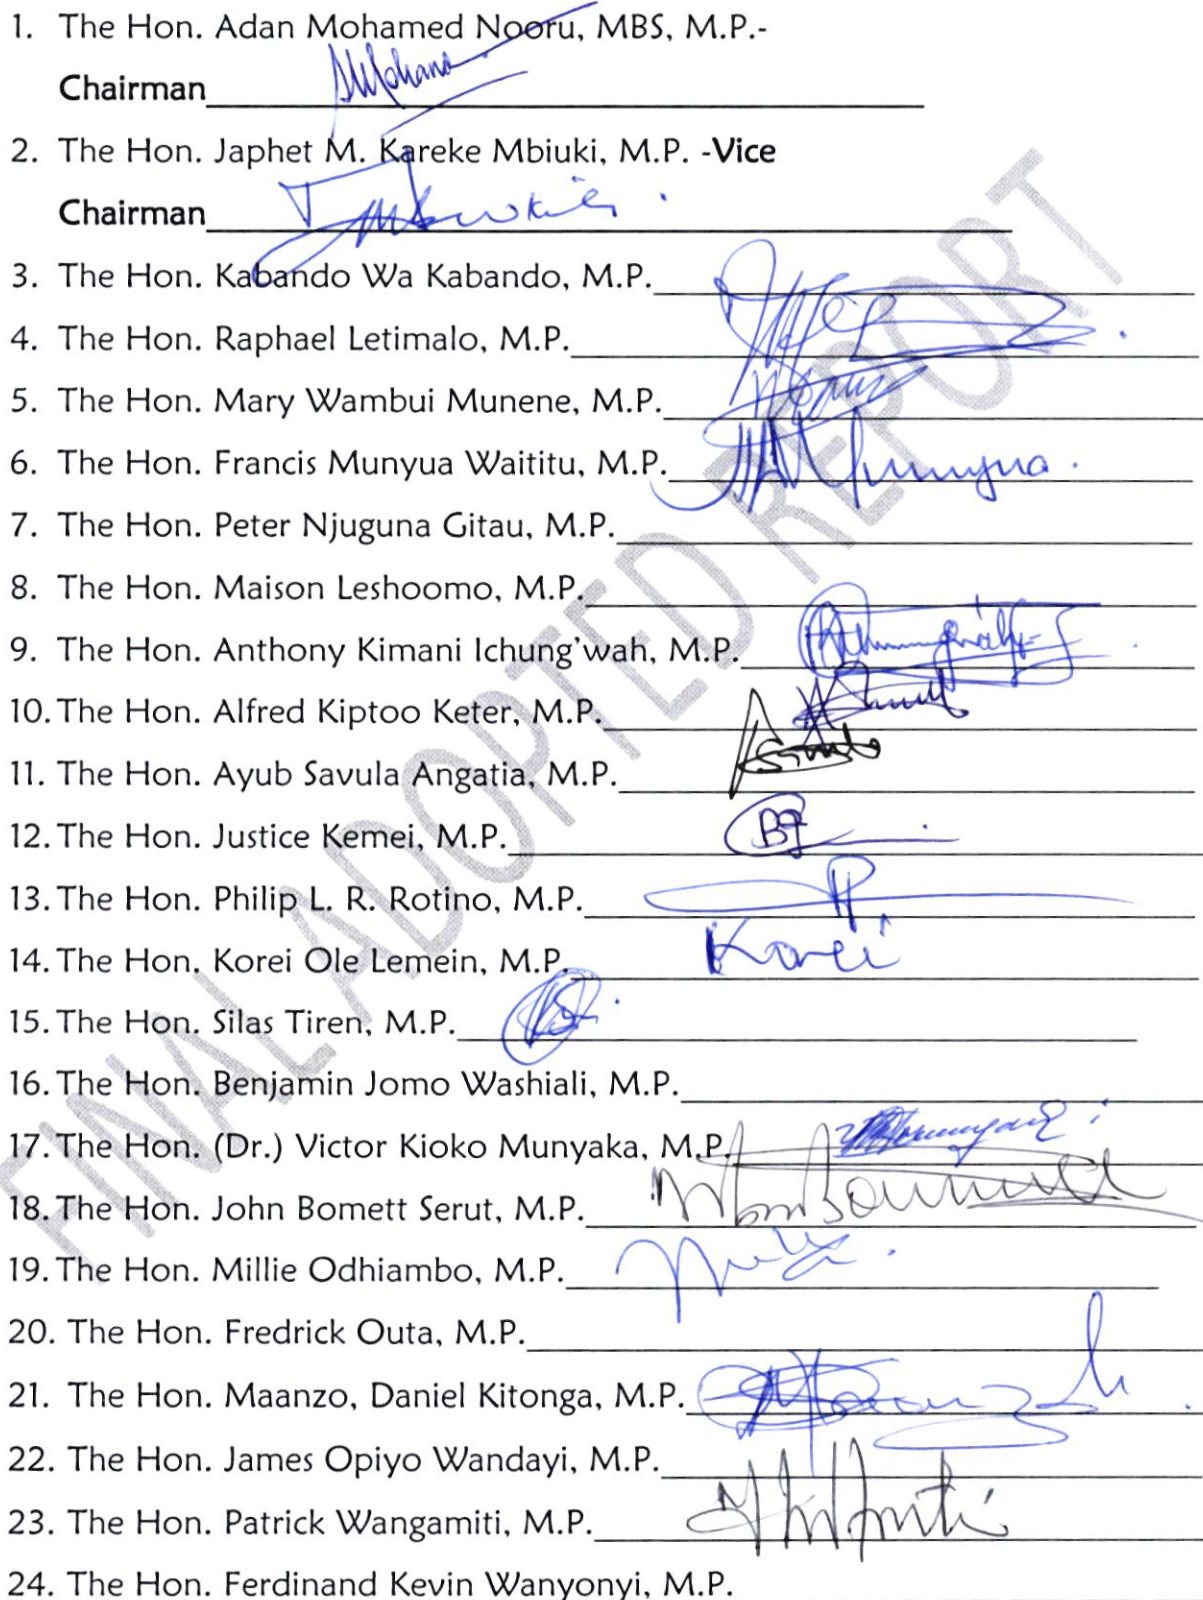 1. The Hon. Adan Mohamed Nooru, MBS, M.P.-
Chairman
2. The Hon. Japhet M. Kareke Mbiuki, M.P. -Vice
Chairman
3. The Hon. Kabando Wa Kabando, M.P.
4. The Hon. Raphael Letimalo, M.P.
5. The Hon. Mary Wambui Munene, M.P.
6. The Hon. Francis Munyua Waititu, M.P.
7. The Hon. Peter Njuguna Gitau, M.P.
8. The Hon. Maison Leshoomo, M.P.
9. The Hon. Anthony Kimani Ichung'wah, M.P.
10. The Hon. Alfred Kiptoo Keter, M.P.
11. The Hon. Ayub Savula Angatia, M.P.
12. The Hon. Justice Kemei, M.P.
13. The Hon. Philip L. R. Rotino, M.P.
14. The Hon. Korei Ole Lemein, M.P. Korei
15. The Hon. Silas Tiren, M.P.
16. The Hon. Benjamin Jomo Washiali, M.P.
17. The Hon. (Dr.) Victor Kioko Munyaka, M.P.
18. The Hon. John Bomett Serut, M.P.
19. The Hon. Millie Odhiambo, M.P.
20. The Hon. Fredrick Outa, M.P.
21. The Hon. Maanzo, Daniel Kitonga, M.P.
22. The Hon. James Opiyo Wandayi, M.P.
23. The Hon. Patrick Wangamiti, M.P.
24. The Hon. Ferdinand Kevin Wanyonyi, M.P.
FINAL ADOPTED REPORT